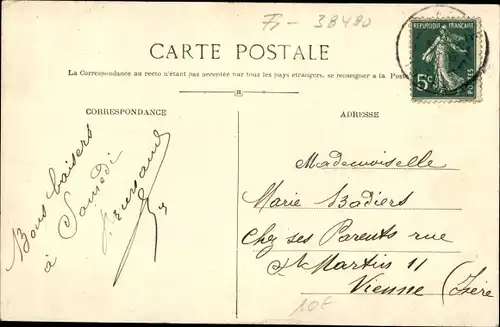 Fr - 38490
CARTE POSTALE
La Correspondance au recto n'étant pas acceptée par tous les pays étrangers, se renseigner à la Poste
RÉPUBLIQUE FRANÇAISE
5c
POSTES
CORRESPONDANCE
ADRESSE
Bons baisers
à Samedi
Mademoiselle
Marie Badiers
Chez ses Parents rue
St Martin 11
Vienne (Isère
10€